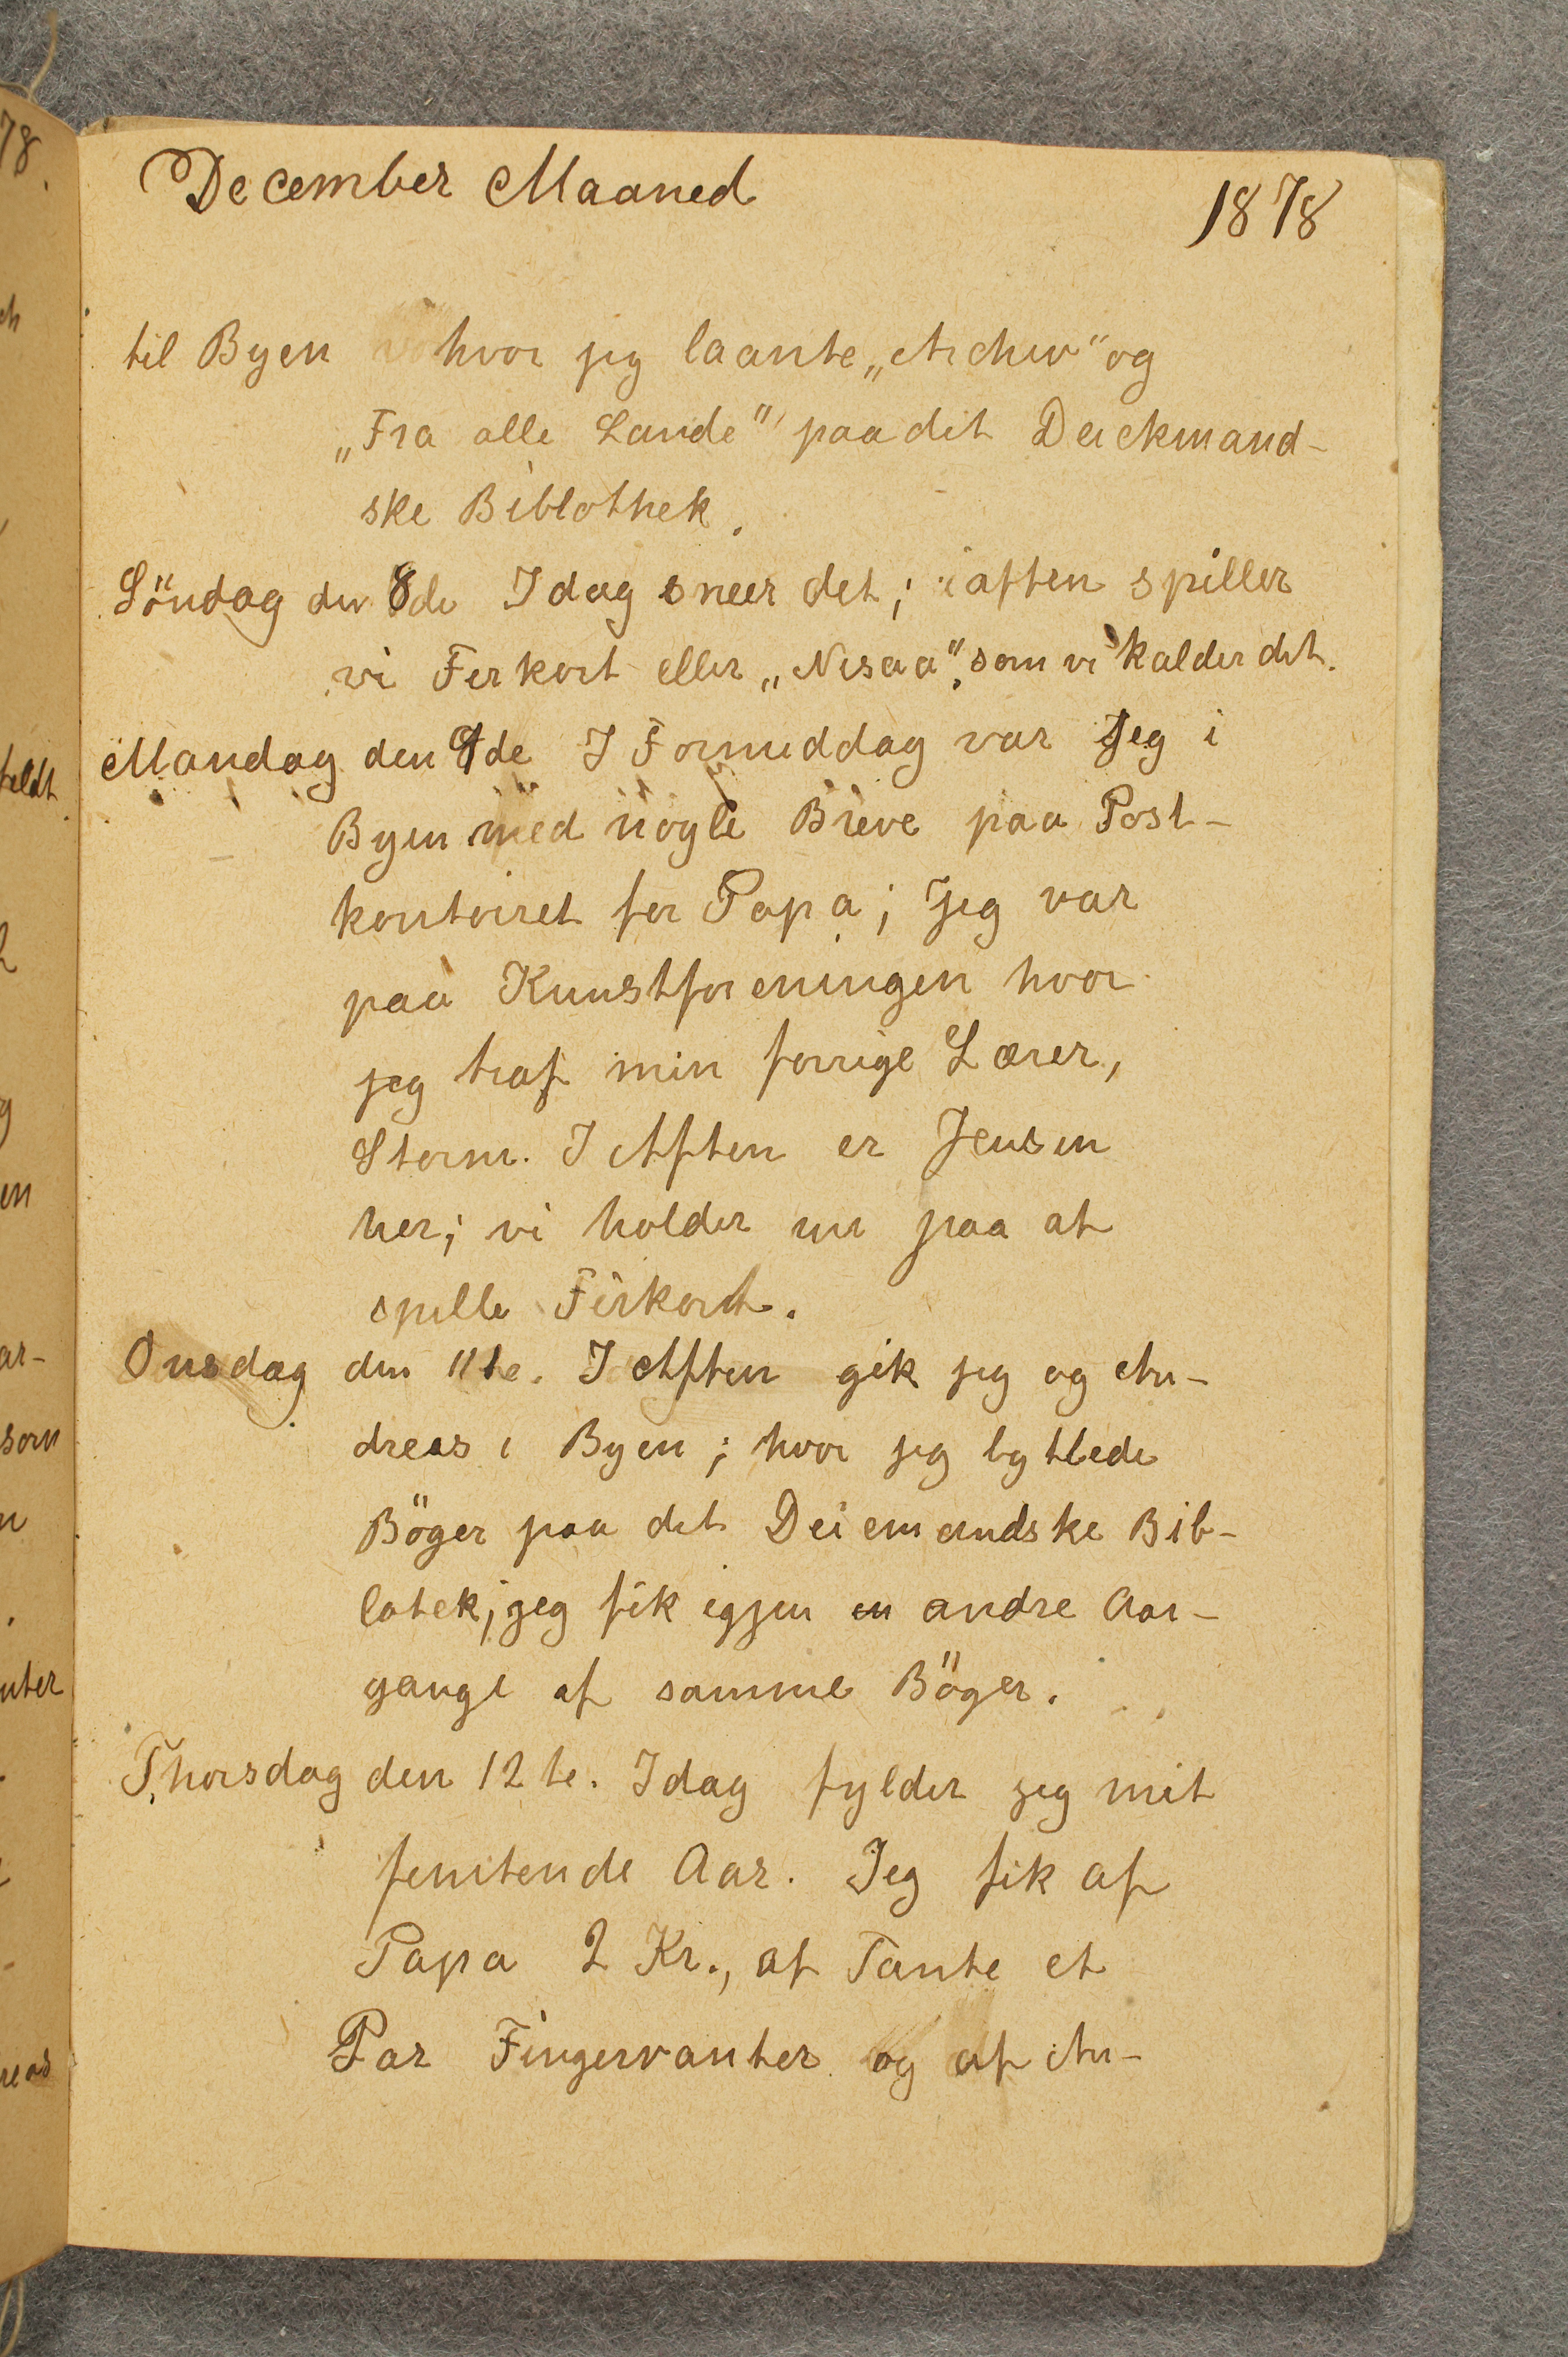 December Maaned
1878
til Byen hvor jeg laante „Archiv" og
„Fra alle Lande" paa det Deickmand-
ske Biblothek.
Söndag den 8de Idag sneer det; iaften spiller
vi Firkort eller „Nisaa", som vi kalder det.
Mandag den 9de I Formiddag var Jeg i
Byen med nogle Breve paa Post-
kontoiret for Papa; Jeg var
paa Kunstforeningen hvor
jeg traf min forrige Lærer,
Storm. I Aften er Jensen
her; vi holder nu paa at
spille Firkort.
Onsdag den 11te. I Aften gik jeg og An-
dreas i Byen; hvor jeg byttede
Böger paa det Deiemandske Bib-
lotek; jeg fik igjen en andre Aar-
gange af samme Böger.
Thorsdag den 12te. Idag fylder jeg mit
femtende Aar. Jeg fik af
Papa 2 Kr., af Tante et
Par Fingervanter og af An-